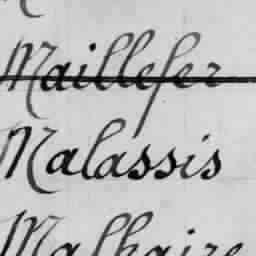 Maillefer
Malassis
Malhaire